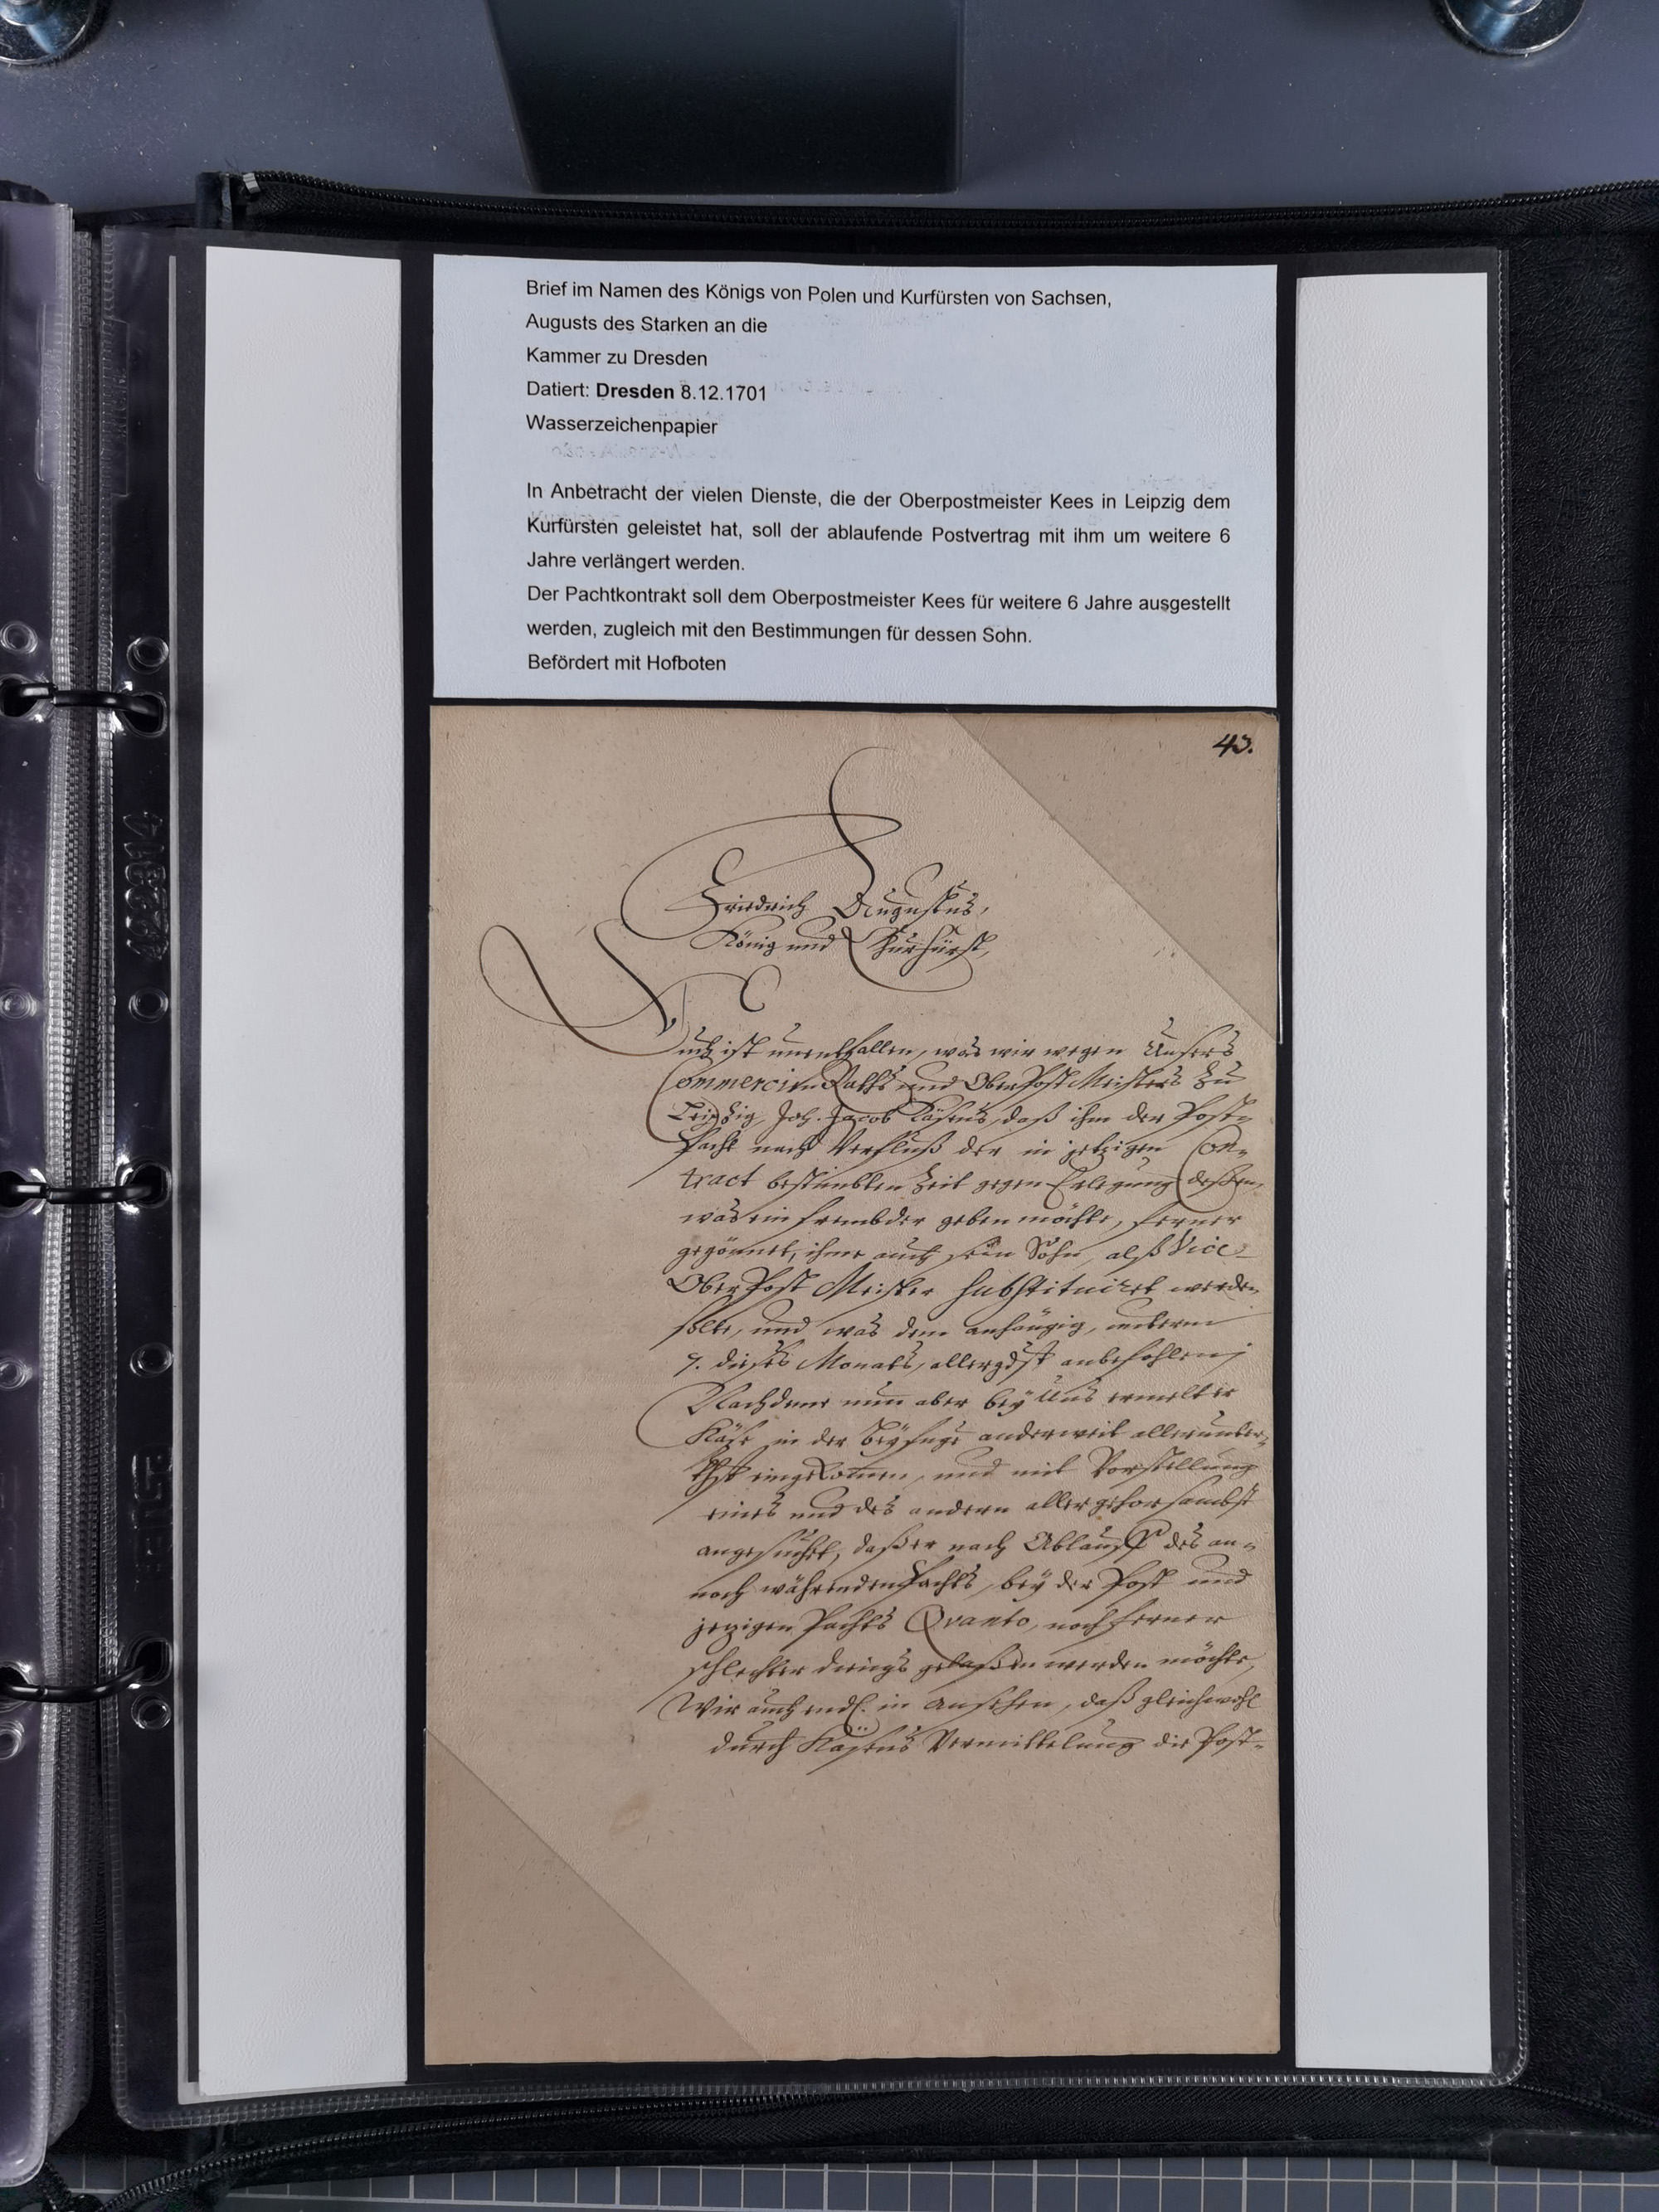 Brief im Namen des Königs von Polen und Kurfürsten von Sachsen,
Augusts des Starken an die
Kammer zu Dresden
Datiert: Dresden 8.12.1701
Wasserzeichenpapier
In Anbetracht der vielen Dienste, die der Oberpostmeister Kees in Leipzig dem
Kurfürsten geleistet hat, soll der ablaufende Postvertrag mit ihm um weitere 6
Jahre verlängert werden.
Der Pachtkontrakt soll dem Oberpostmeister Kees für weitere 6 Jahre ausgestellt
werden, zugleich mit den Bestimmungen für dessen Sohn.
Befördert mit Hofboten
43.
Friedrich Augustus,
König und Churfürst,
Euch ist unentfallen, was wir wegen Unsers
Commercien Raths und Ober Post Meisters zu
Leipzig, Joh. Jacob Käsens, daß ihm der Post-
Pacht nach Verfluß der in jetzigen Con-
tract bestimbten Zeit gegen Erlegung deßen,
was ein frembder geben möchte, ferner
gegönnet, ihme auch sein Sohn, alß Vice-
Ober Post Meister substituiret werden
solte, und was dem anhängig, unterm
7. dieses Monats, allergdst anbefohlen;
Nachdeme nun aber bey Uns ermelter
Käse in der Beyfuge anderweit allerunter-
thst eingekommen, und mit Vorstellung
eines und des andern allergehorsambst
angesuchet, daß er nach Ablauff des an-
noch währenden Pachts, bey der Post und
jezigen Pachts Qvanto, noch ferner
schlechter dings gelaßen werden möchte,
Wir auch endl. in ansehen, daß gleichwohl
durch Käsens Vermittelung die Post-
422314